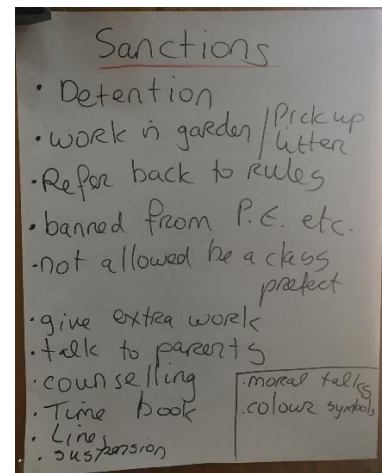 Sanctions
• Detention
• work in garden / Pick up litter
• Refer back to rules
• banned from P.E. etc.
• not allowed be a class
prefect
• give extra work
• talk to parents
• counselling
• Time book
• Lines
• suspension
• moral talks
• colour symbols